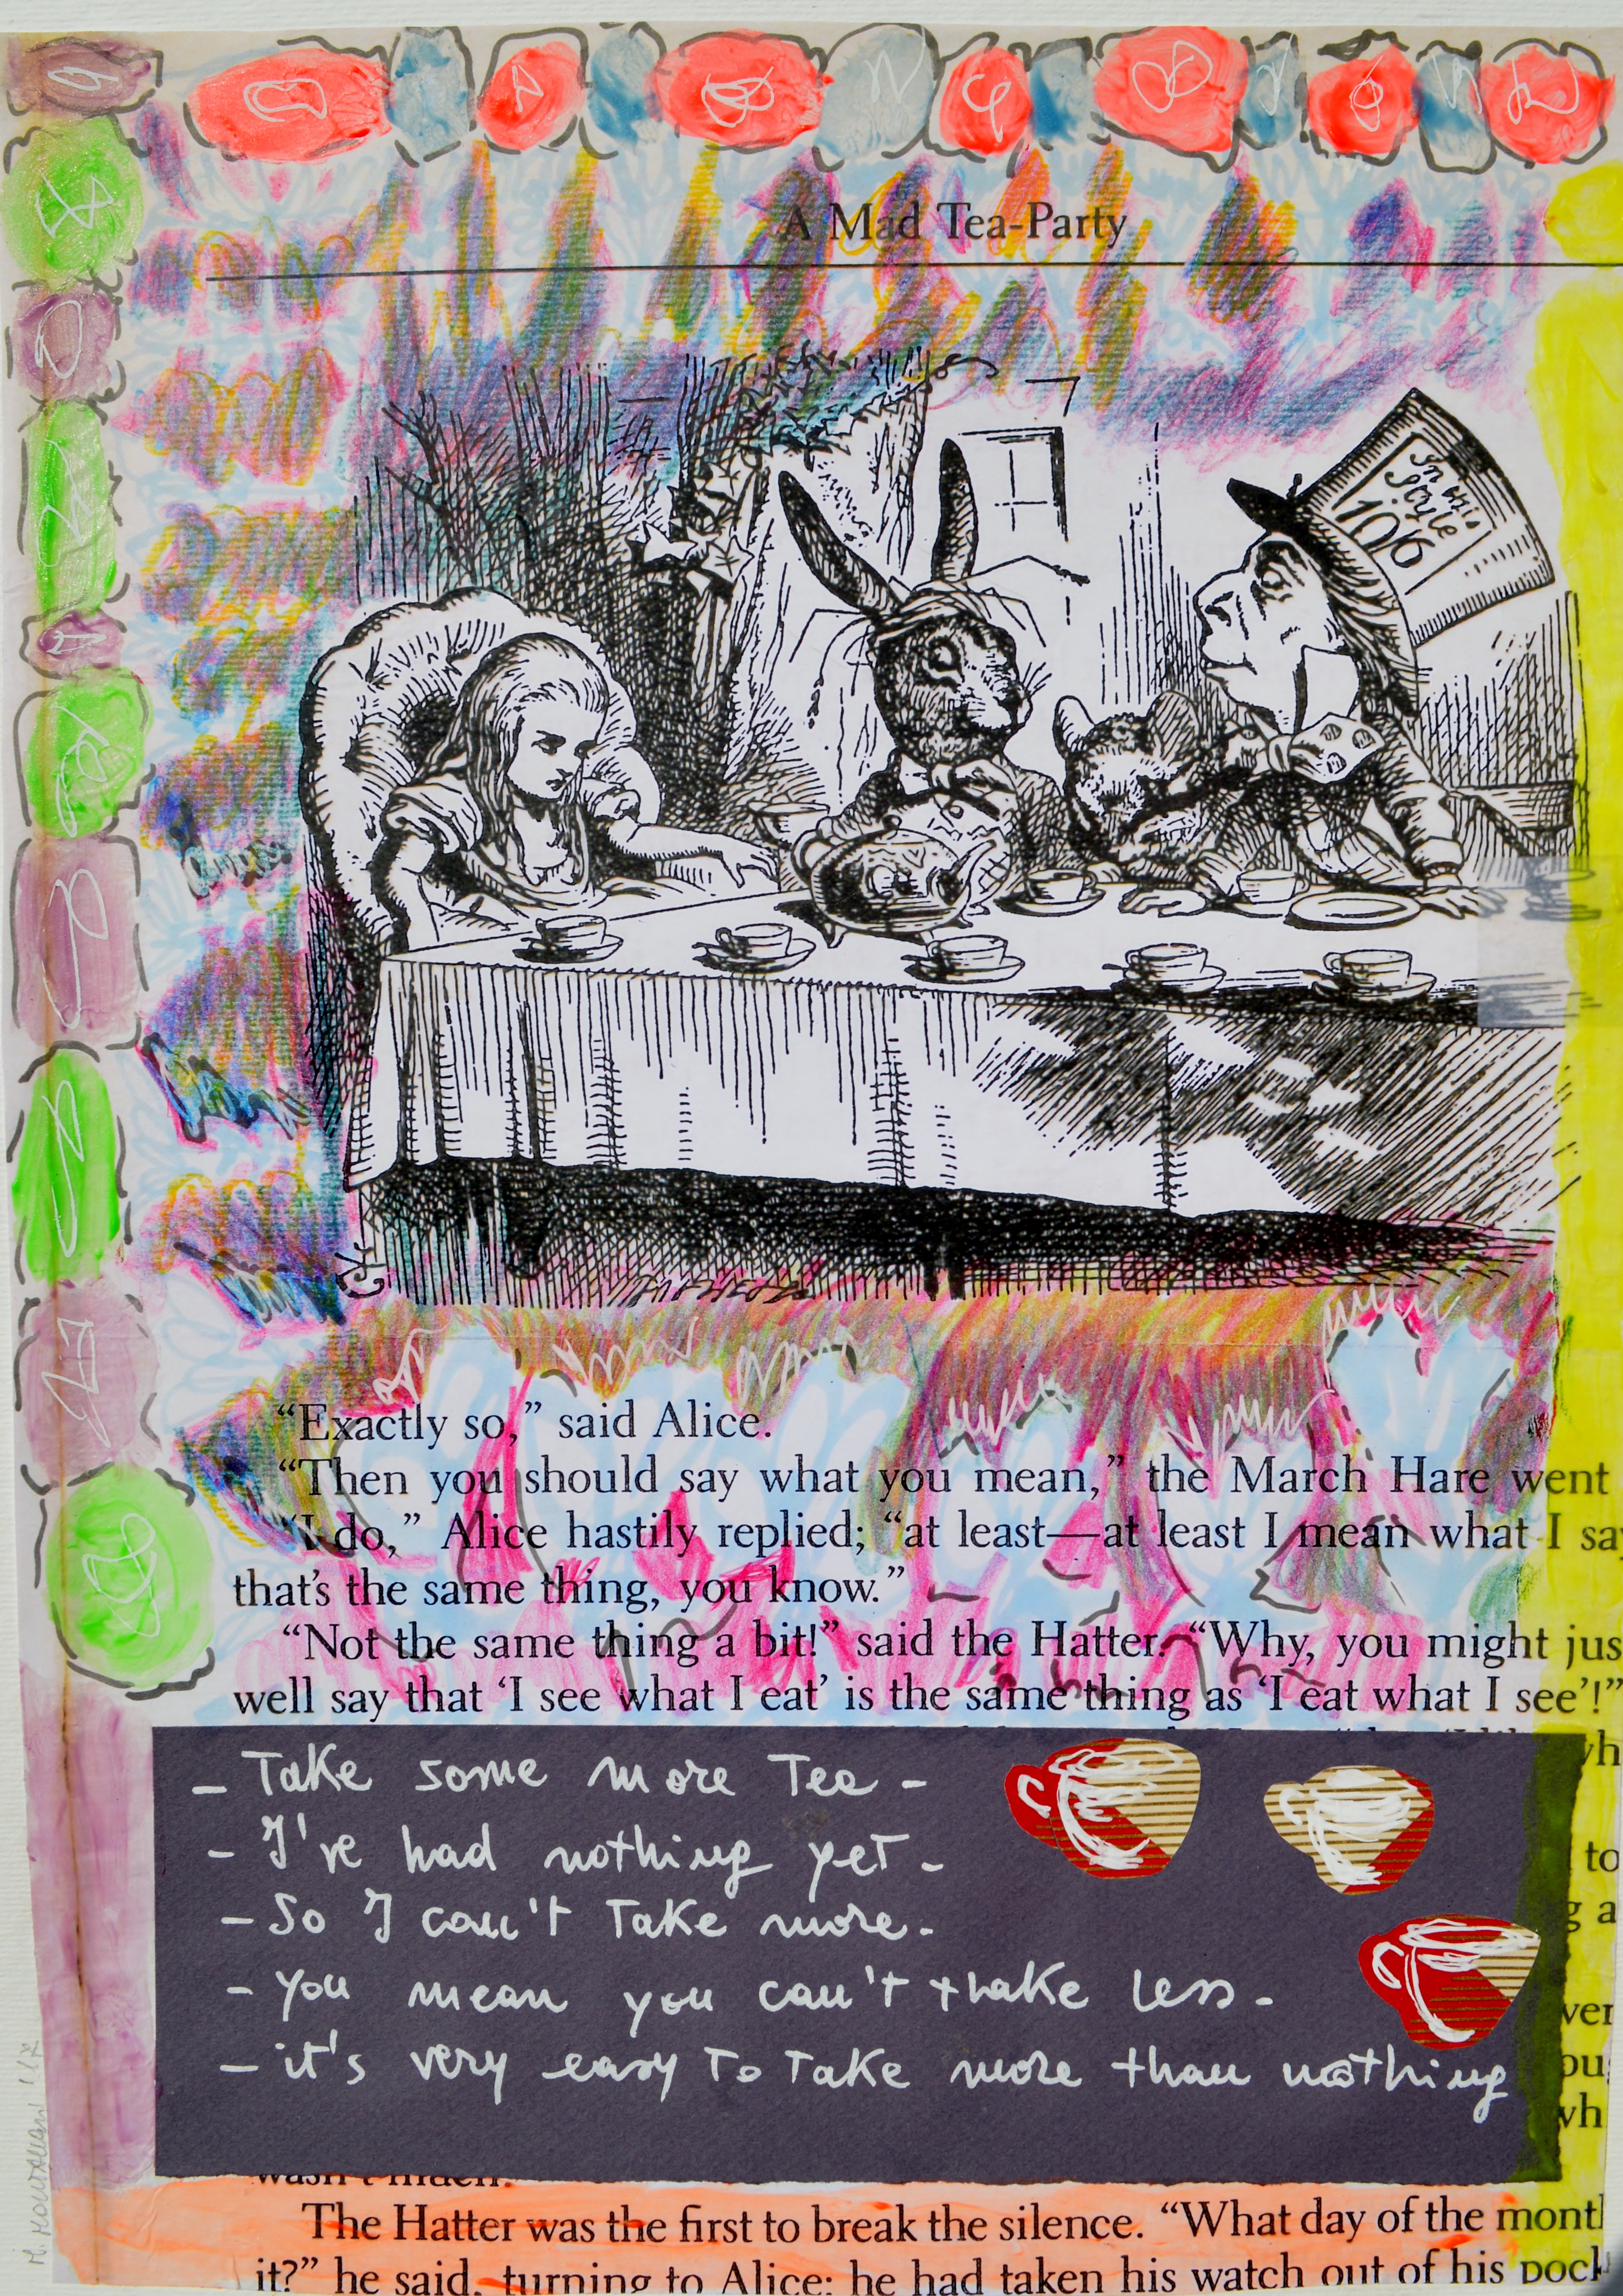 A Mad Tea-Party
In this
Style
10/6
“Exactly so,” said Alice.
“Then you should say what you mean,” the March Hare went
“I do,” Alice hastily replied; “at least—at least I mean what I sa
that’s the same thing, you know.”
“Not the same thing a bit!” said the Hatter. “Why, you might jus
well say that ‘I see what I eat’ is the same thing as ‘I eat what I see’!”
wh
– Take some more Tea –
– I've had nothing yet –
to
– So I can't Take more.
g a
– you mean you can't thake less –
ver
– it's very easy To Take more than nothing
ou
wh
wasn’t much.
The Hatter was the first to break the silence. “What day of the mont
it?” he said, turning to Alice: he had taken his watch out of his pock